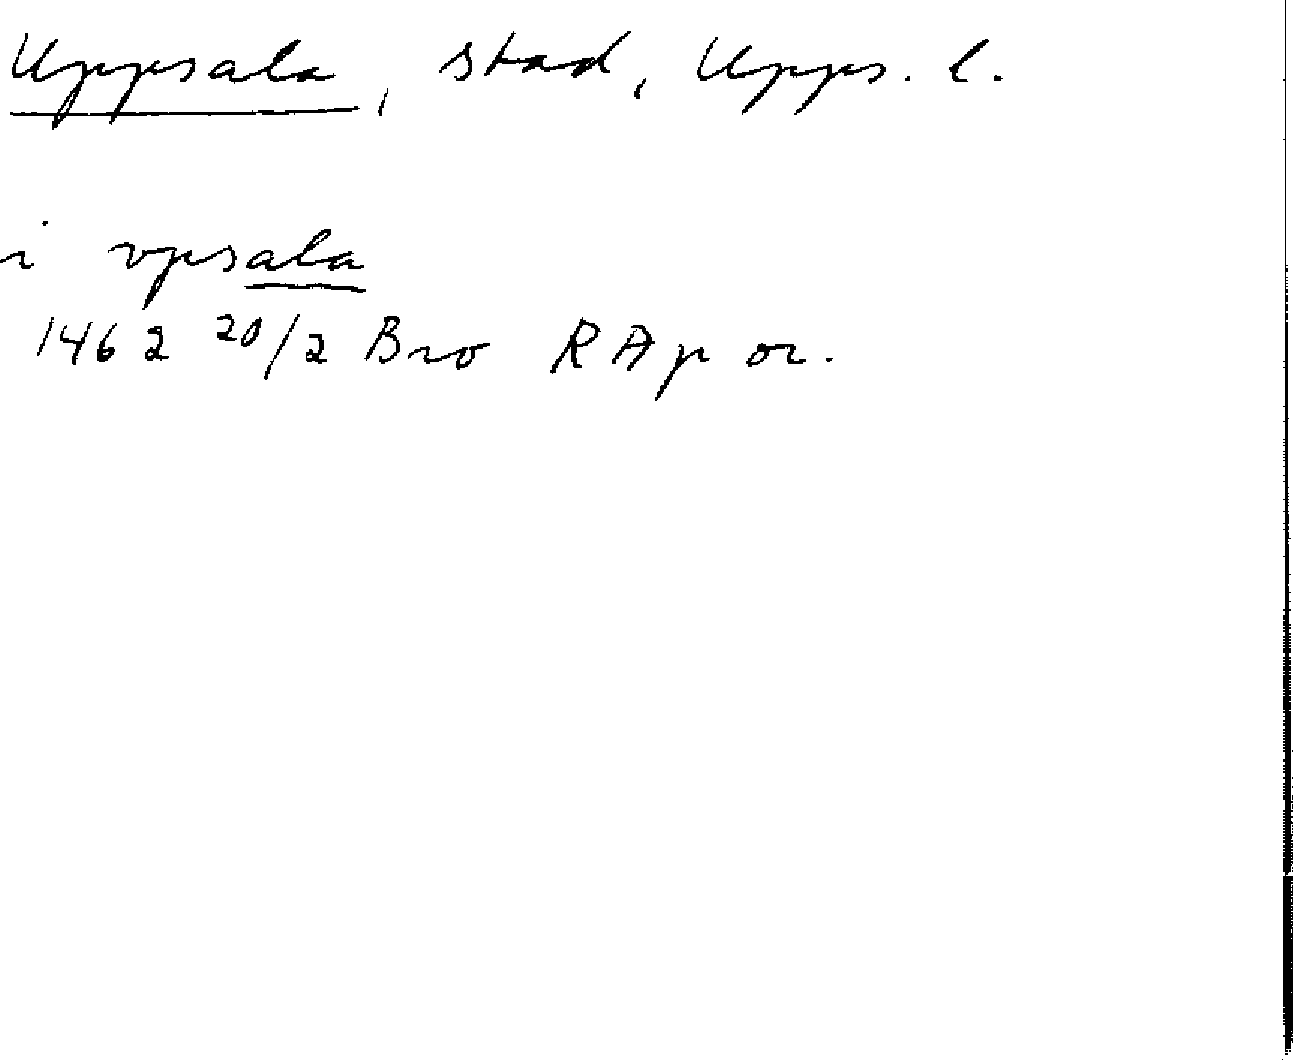 Uppsala, stad, Upps. l.
i vpsala
1462 20/2 Bro RAp or.